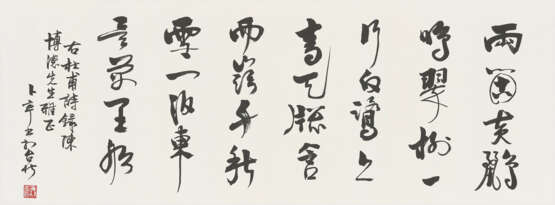 兩個黃鸝
鳴翠柳一
行白鷺上
青天窗含
西嶺千秋
雪門泊東
吳萬里船
右杜甫詩錄陳
博德先生雅正